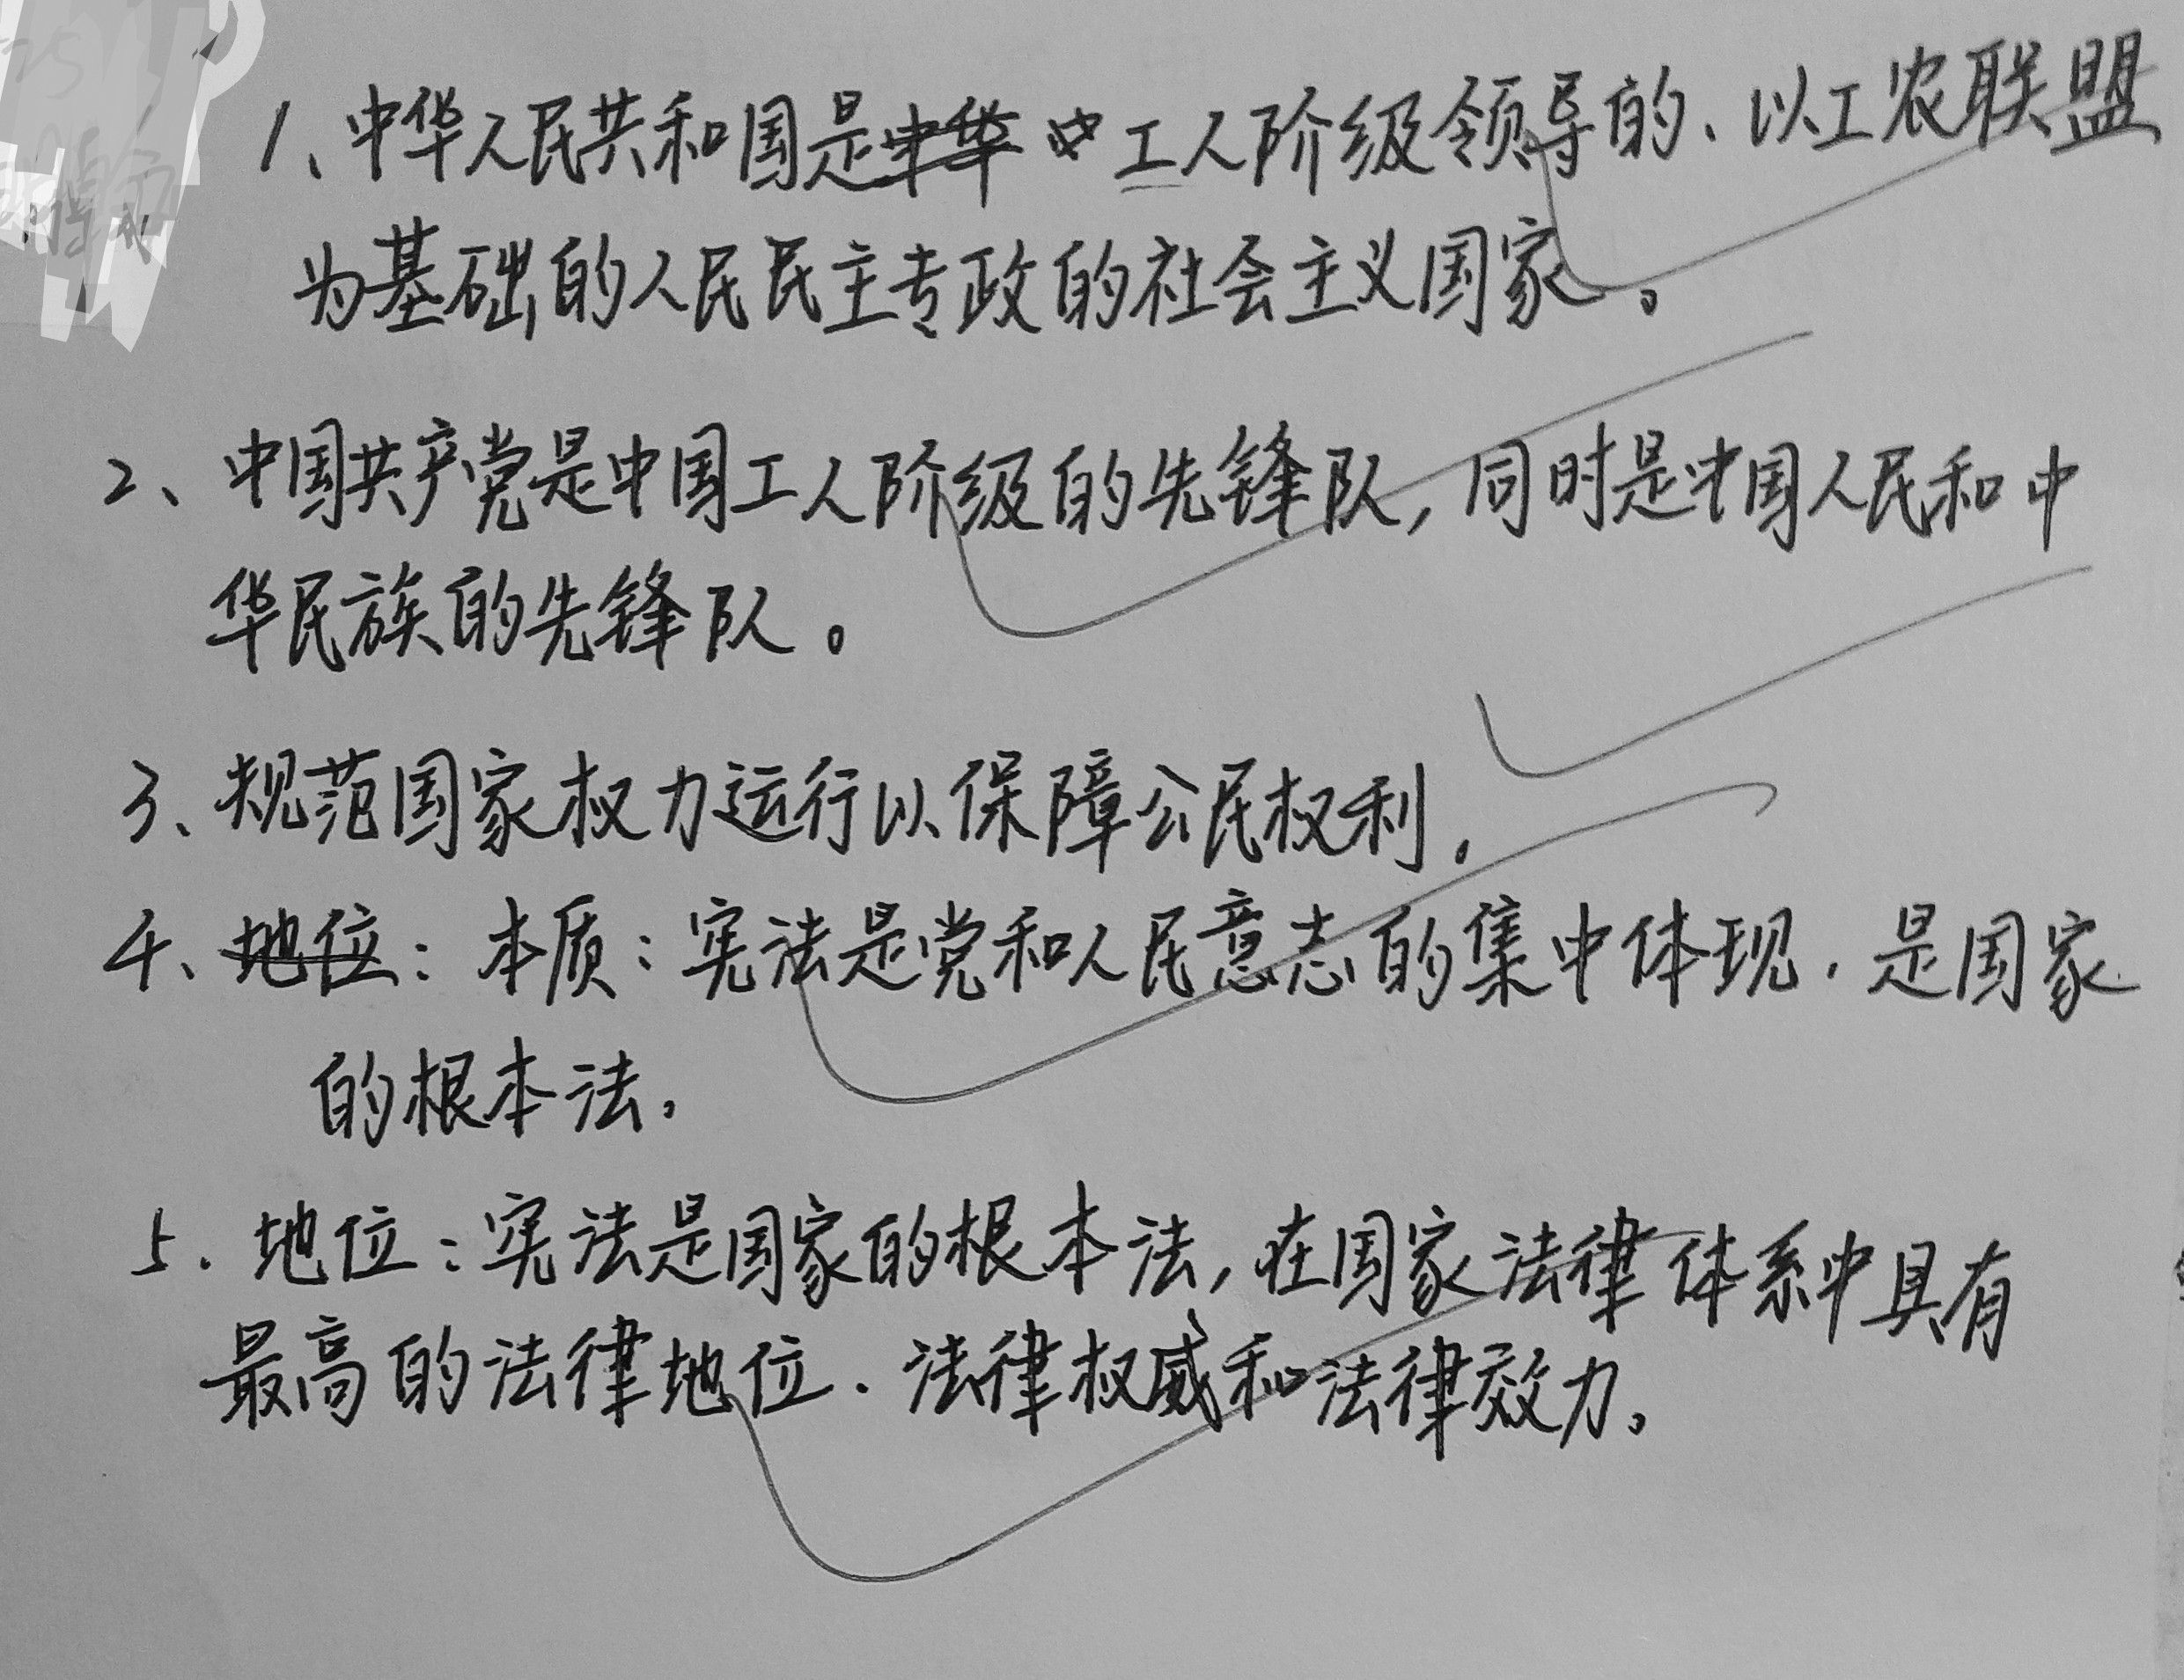 1、中华人民共和国是中华 中 工人阶级领导的、以工农联盟
为基础的人民民主专政的社会主义国家。
2、中国共产党是中国工人阶级的先锋队,同时是中国人民和中
华民族的先锋队。
3、规范国家权力运行以保障公民权利.
4、地位:本质:宪法是党和人民意志的集中体现.是国家
的根本法.
5.地位:宪法是国家的根本法,在国家法律体系中具有
最高的法律地位.法律权威和法律效力.